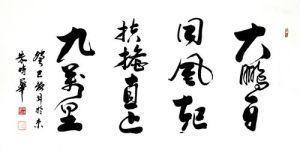 大鹏一日
同风起
扶摇直上
九万里
癸巳
朱时华